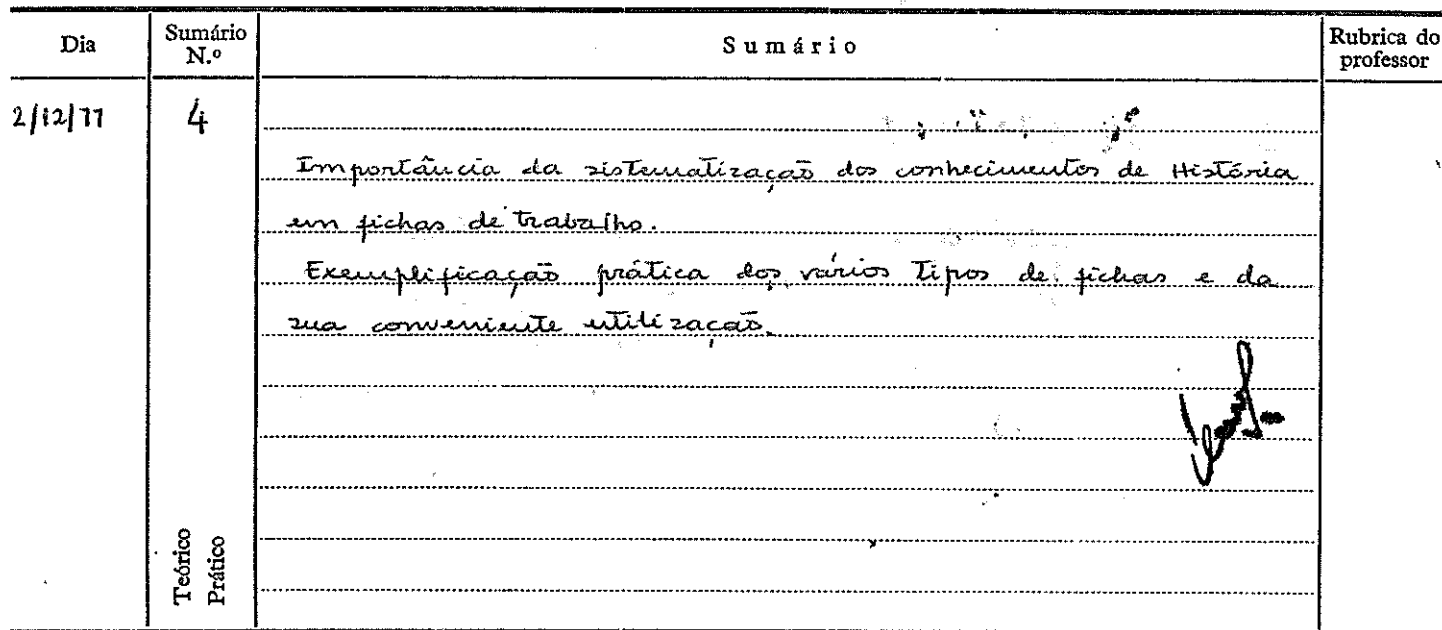 Dia
Sumário N.º
Sumário
Rubrica do professor
2/12/77
4
Importância da sistematização dos conhecimentos de História
em fichas de trabalho.
Exemplificação prática dos vários tipos de fichas e da
sua conveniente utilização.
Teórico
Prático